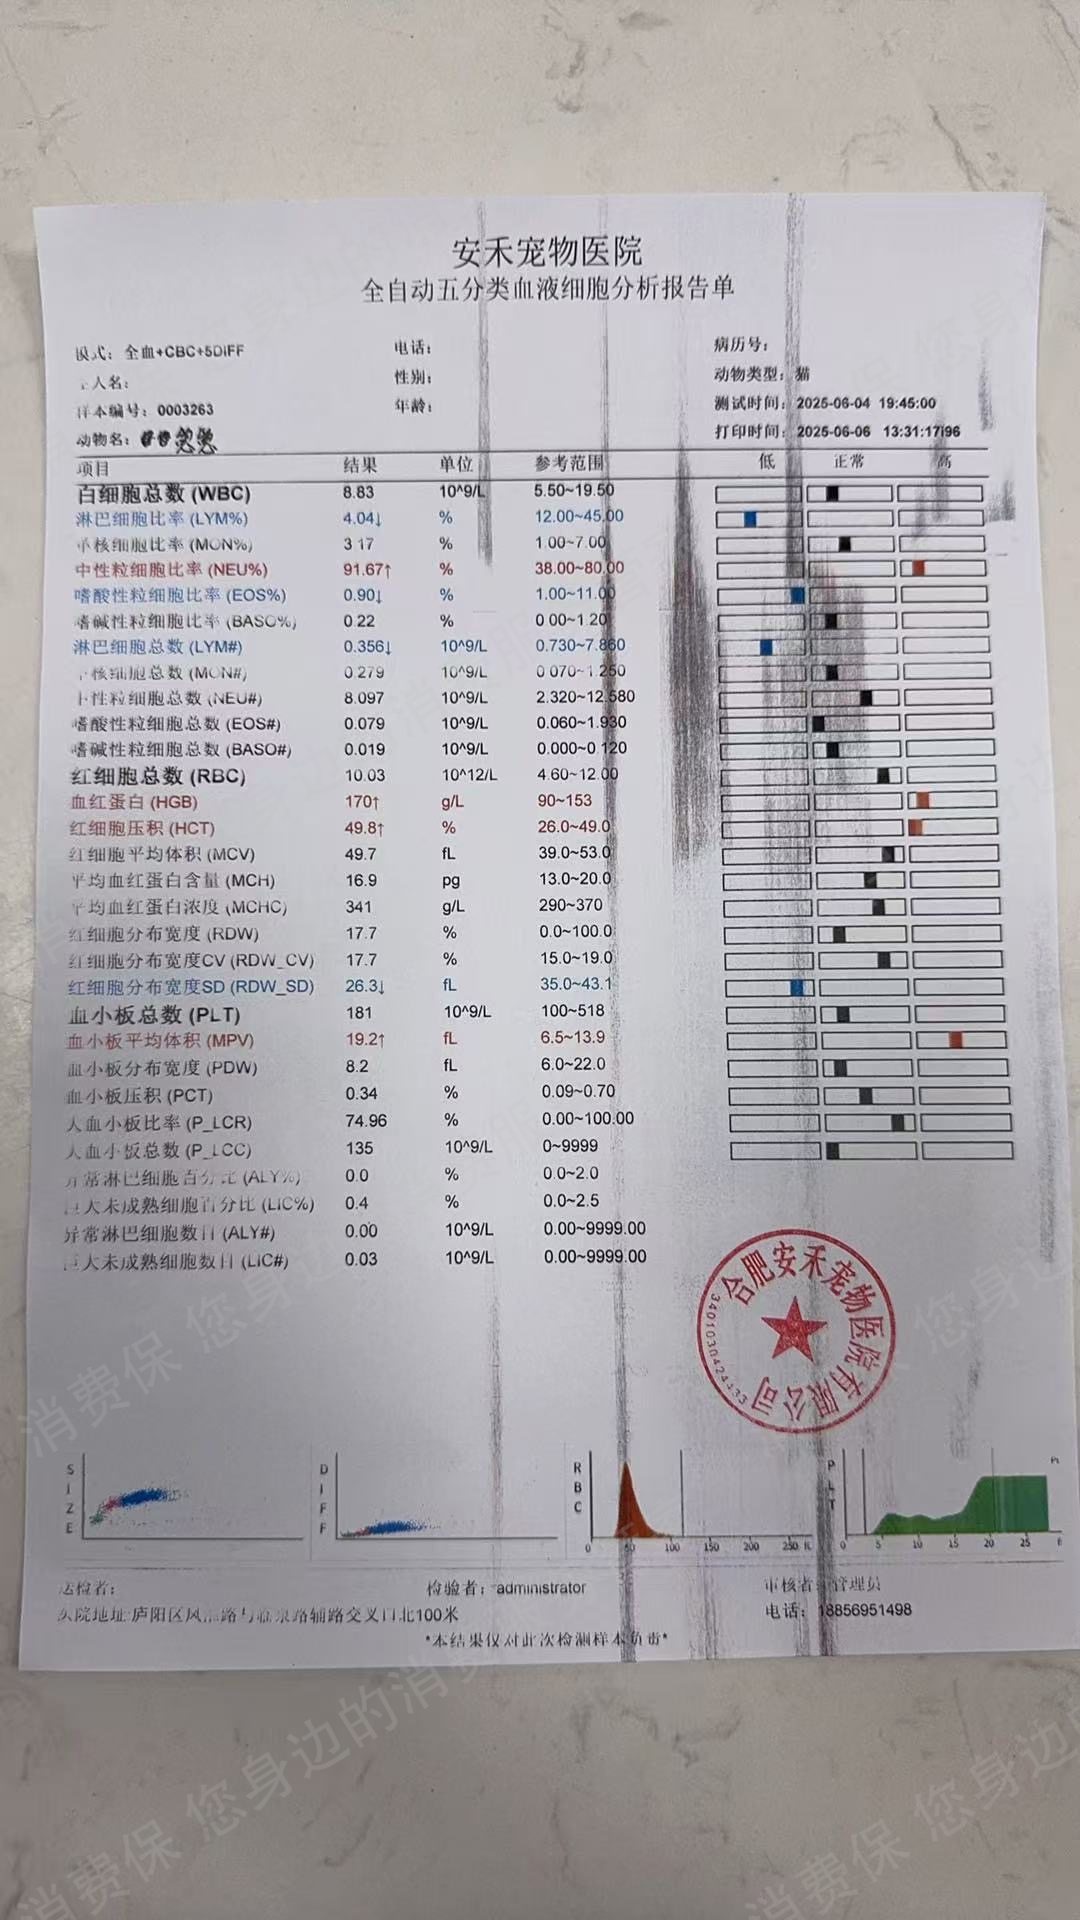 安禾宠物医院
全自动五分类血液细胞分析报告单
模式：全血+CBC+5DIFF 电话： 病历号：
主人名： 性别： 动物类型：猫
样本编号：0003263 年龄： 测试时间：2025-06-04 19:45:00
动物名： 打印时间：2025-06-06 13:31:17
项目 结果 单位 参考范围 低 正常 高
白细胞总数 (WBC) 8.83 10^9/L 5.50~19.50
淋巴细胞比率 (LYM%) 4.04↓ % 12.00~45.00
单核细胞比率 (MON%) 3.17 % 1.00~7.00
中性粒细胞比率 (NEU%) 91.67↑ % 38.00~80.00
嗜酸性粒细胞比率 (EOS%) 0.90↓ % 1.00~11.00
嗜碱性粒细胞比率 (BASO%) 0.22 % 0.00~1.20
淋巴细胞总数 (LYM#) 0.356↓ 10^9/L 0.730~7.860
单核细胞总数 (MON#) 0.279 10^9/L 0.070~1.250
中性粒细胞总数 (NEU#) 8.097 10^9/L 2.320~12.580
嗜酸性粒细胞总数 (EOS#) 0.079 10^9/L 0.060~1.930
嗜碱性粒细胞总数 (BASO#) 0.019 10^9/L 0.000~0.120
红细胞总数 (RBC) 10.03 10^12/L 4.60~12.00
血红蛋白 (HGB) 170↑ g/L 90~153
红细胞压积 (HCT) 49.8↑ % 26.0~49.0
红细胞平均体积 (MCV) 49.7 fL 39.0~53.0
平均血红蛋白含量 (MCH) 16.9 pg 13.0~20.0
平均血红蛋白浓度 (MCHC) 341 g/L 290~370
红细胞分布宽度 (RDW) 17.7 % 0.0~100.0
红细胞分布宽度CV (RDW_CV) 17.7 % 15.0~19.0
红细胞分布宽度SD (RDW_SD) 26.3↓ fL 35.0~43.1
血小板总数 (PLT) 181 10^9/L 100~518
血小板平均体积 (MPV) 19.2↑ fL 6.5~13.9
血小板分布宽度 (PDW) 8.2 fL 6.0~22.0
血小板压积 (PCT) 0.34 % 0.09~0.70
大血小板比率 (P_LCR) 74.96 % 0.00~100.00
大血小板总数 (P_LCC) 135 10^9/L 0~9999
异常淋巴细胞百分比 (ALY%) 0.0 % 0.0~2.0
巨大未成熟细胞百分比 (LIC%) 0.4 % 0.0~2.5
异常淋巴细胞数目 (ALY#) 0.00 10^9/L 0.00~9999.00
巨大未成熟细胞数目 (LIC#) 0.03 10^9/L 0.00~9999.00
合肥安禾宠物医院有限公司
3401030424433
SIZE DIFF RBC PLT
0 50 100 150 200 250 fL
0 5 10 15 20 25
送检者： 检验者：administrator 审核者：管理员
医院地址:庐阳区凤淮路与临泉路辅路交叉口北100米 电话：18856951498
*本结果仅对此次检测样本负责*
消费保 您身边的消费